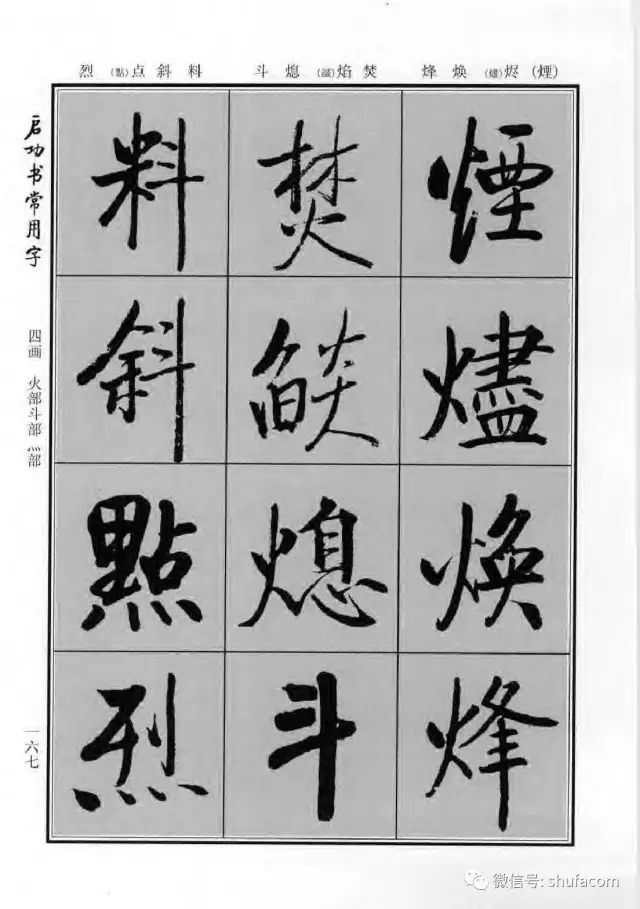 (煙)烬(燼)焕烽 焚焰(燄)熄斗 料斜点(點)烈
煙燼焕烽
焚燄熄斗
料斜點烈
启功书常用字
四画 火部斗部灬部
一六七
微信号: shufacom